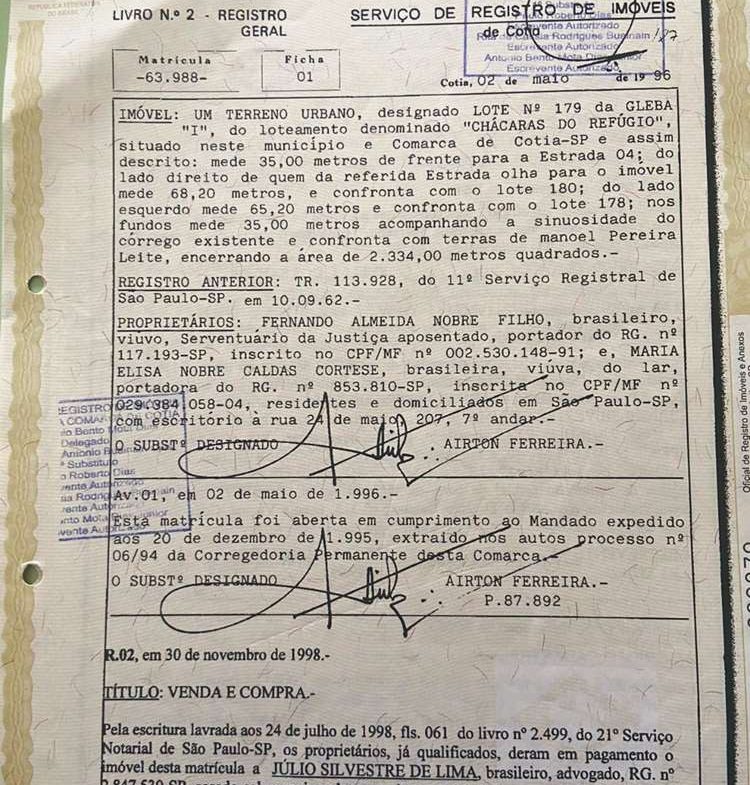 REPÚBLICA FEDERATIVA
DO BRASIL
LIVRO N.º 2 - REGISTRO
GERAL
SERVIÇO DE REGISTRO DE IMÓVEIS
de Cotia
Substituto
Roberto Dias
Escrevente Autorizado
Rodrigues Buainain
Escrevente Autorizado
Antonio Bento Mota Dias Junior
Escrevente Autorizado
Matrícula
-63.988-
Ficha
01
Cotia, 02 de maio de 19 96
IMÓVEL: UM TERRENO URBANO, designado LOTE Nº 179 da GLEBA
"I", do loteamento denominado "CHÁCARAS DO REFÚGIO",
situado neste município e Comarca de Cotia-SP e assim
descrito: mede 35,00 metros de frente para a Estrada 04; do
lado direito de quem da referida Estrada olha para o imovel
mede 68,20 metros, e confronta com o lote 180; do lado
esquerdo mede 65,20 metros e confronta com o lote 178; nos
fundos mede 35,00 metros acompanhando a sinuosidade do
córrego existente e confronta com terras de manoel Pereira
Leite, encerrando a área de 2.334,00 metros quadrados.-
REGISTRO ANTERIOR: TR. 113.928, do 11º Serviço Registral de
São Paulo-SP. em 10.09.62.-
PROPRIETÁRIOS: FERNANDO ALMEIDA NOBRE FILHO, brasileiro,
viuvo, Serventuário da Justiça aposentado, portador do RG. nº
117.193-SP, inscrito no CPF/MF nº 002.530.148-91; e, MARIA
ELISA NOBRE CALDAS CORTESE, brasileira, viúva, do lar,
portadora do RG. nº 853.810-SP, inscrita no CPF/MF nº
029.384.058-04, residentes e domiciliados em São Paulo-SP,
com escritório à rua 24 de maio, 207, 7º andar.-
O SUBSTº DESIGNADO AIRTON FERREIRA.-
Av.01, em 02 de maio de 1.996.-
Esta matrícula foi aberta em cumprimento ao Mandado expedido
aos 20 de dezembro de 1.995, extraído nos autos processo nº
06/94 da Corregedoria Permanente desta Comarca.-
O SUBSTº DESIGNADO AIRTON FERREIRA.-
P.87.892
R.02, em 30 de novembro de 1998.-
TÍTULO: VENDA E COMPRA.-
Pela escritura lavrada aos 24 de julho de 1998, fls. 061 do livro nº 2.499, do 21º Serviço
Notarial de São Paulo-SP, os proprietários, já qualificados, deram em pagamento o
imóvel desta matrícula a JÚLIO SILVESTRE DE LIMA, brasileiro, advogado, RG. nº
Oficial de Registro de Imóveis e Anexos